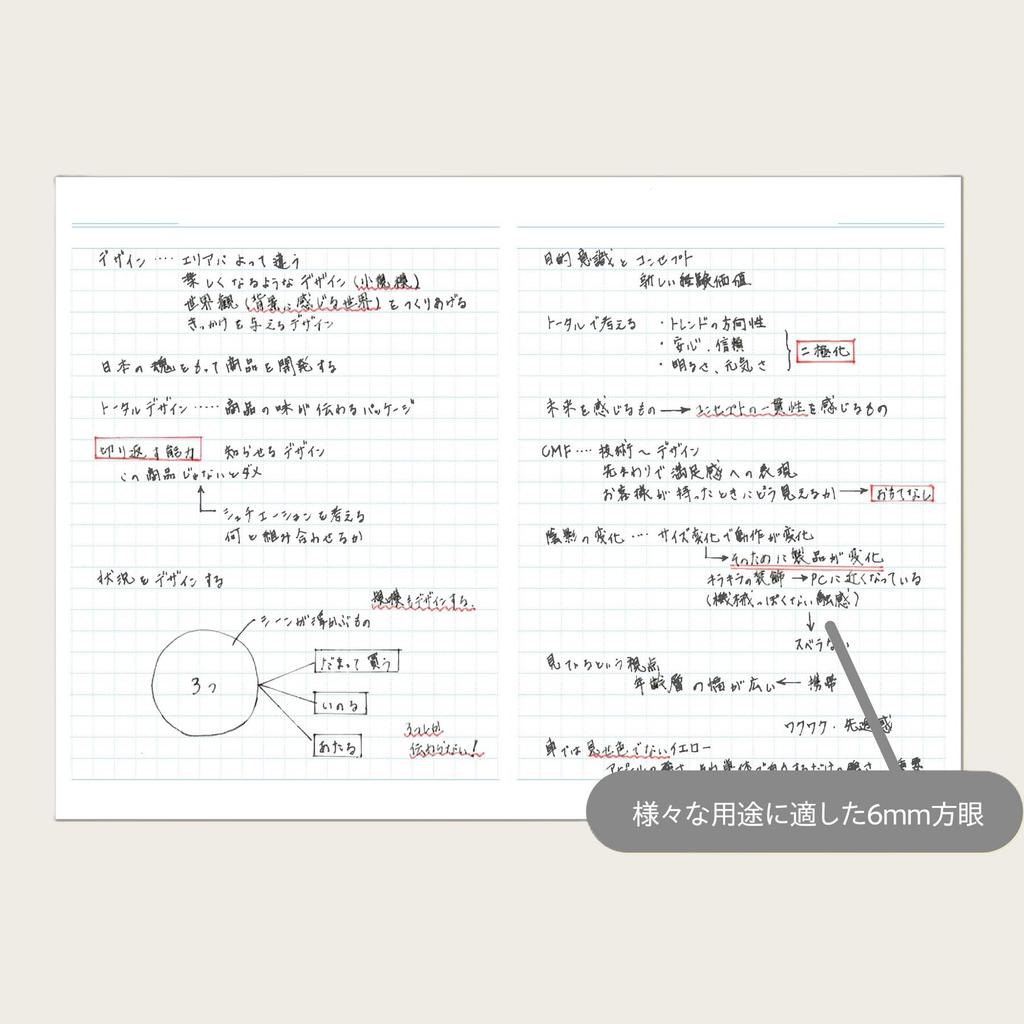 デザイン‥‥エリアによって違う
楽しくなるようなデザイン
世界観(背景に感じる世界)をつくりあげる
きっかけを与えるデザイン
日本の魂をもって商品を開発する
トータルデザイン‥‥‥商品の味が伝わるパッケージ
切り返す能力 知らせるデザイン
この商品じゃないとダメ
シュチエーションを考える
何と組み合わせるか
状況をデザインする
をデザインする。
シーンが浮かぶもの
3つ
だまって買う
いのる
あたる
3つしか
伝わらない!
目的意識とコンセプト
新しい経験価値
トータルで考える ・トレンドの方向性
・安心、信頼
・明るさ、元気さ
二極化
未来を感じるもの→コンセプトの一貫性を感じるもの
CMF‥‥技術〜デザイン
先まわりで満足感への表現
お客様が持ったときにどう見えるか→おもてなし
陰影の変化‥‥サイズ変化で動作が変化
そのために製品が変化
キラキラの装飾→PCに近くなっている
(機械っぽくない触感)
スベラない
見ているという視点
年齢層の幅が広い←携帯
ワクワク・先進感
車では見せ色でないイエロー
様々な用途に適した6mm方眼